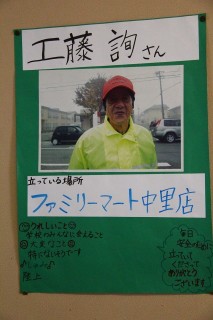 工藤 詢さん
立っている場所
ファミリーマート中里店
うれしいこと
学校のみんなに会えること
大変なこと
特にないそうです
しゅみ
陸上
毎日
立って
くださって
ありがとう
ございます